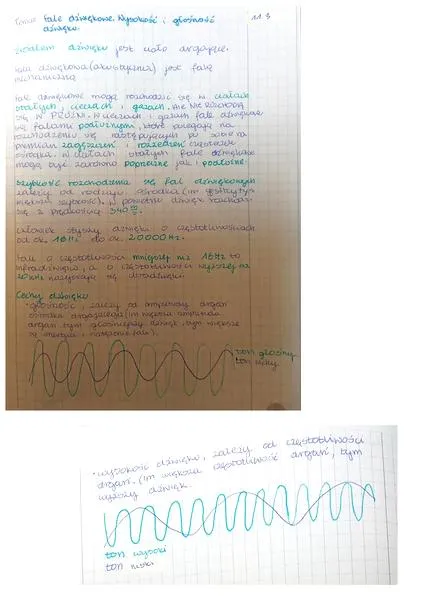 Temat: Fale dźwiękowe. Wysokość i głośność 11.3
dźwięku.
Źródłem dźwięku jest ciało drgające.
Fala dźwiękowa (akustyczna) jest falą
mechaniczną
Fale dźwiękowe mogą rozchodzić się w ciałach
stałych, cieczach i gazach. Ale NIE ROZCHODZĄ
SIĘ W PRÓŻNI. W cieczach i gazach fale dźwiękowe
są falami podłużnymi, które polegają na
rozchodzeniu się następujących po sobie na
przemian zagęszczeń i rozrzedzeń cząsteczek
ośrodka. W ciałach stałych fale dźwiękowe
mogą być zarówno poprzeczne jak i podłużne.
Szybkość rozchodzenia się fal dźwiękowych
zależy od rodzaju ośrodka (im gęstszy tym
większa szybkość). W powietrzu dźwięk rozchodzi
się z prędkością 340 m/s.
Człowiek słyszy dźwięki o częstotliwościach
od ok. 16Hz do ok. 20000Hz.
Fale o częstotliwości mniejszej niż 16Hz to
infradźwięki, a o częstotliwości wyższej na
20kHz nazywają się ultradźwięki.
Cechy dźwięku
• głośność, zależy od amplitudy drgań
ośrodka drgającego (im większa amplituda
drgań tym głośniejszy dźwięk, tym większe
są energia i natężenie fali).
ton głośny
ton cichy.
• wysokość dźwięku, zależy od częstotliwości
drgań. (im większa częstotliwość drgań, tym
wyższy dźwięk.
ton wysoki
ton niski